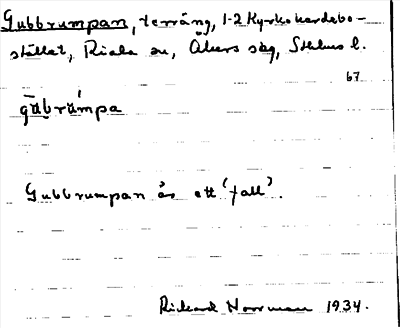 Gubbrumpan, terräng, 1-2 Kyrkoherdebo-
stället, Riala sn, Åkers skg, Sthlms l.
67
gu̇brumpa
Gubbrumpan är ett 'fall'.
Rickard Norrman 1934.